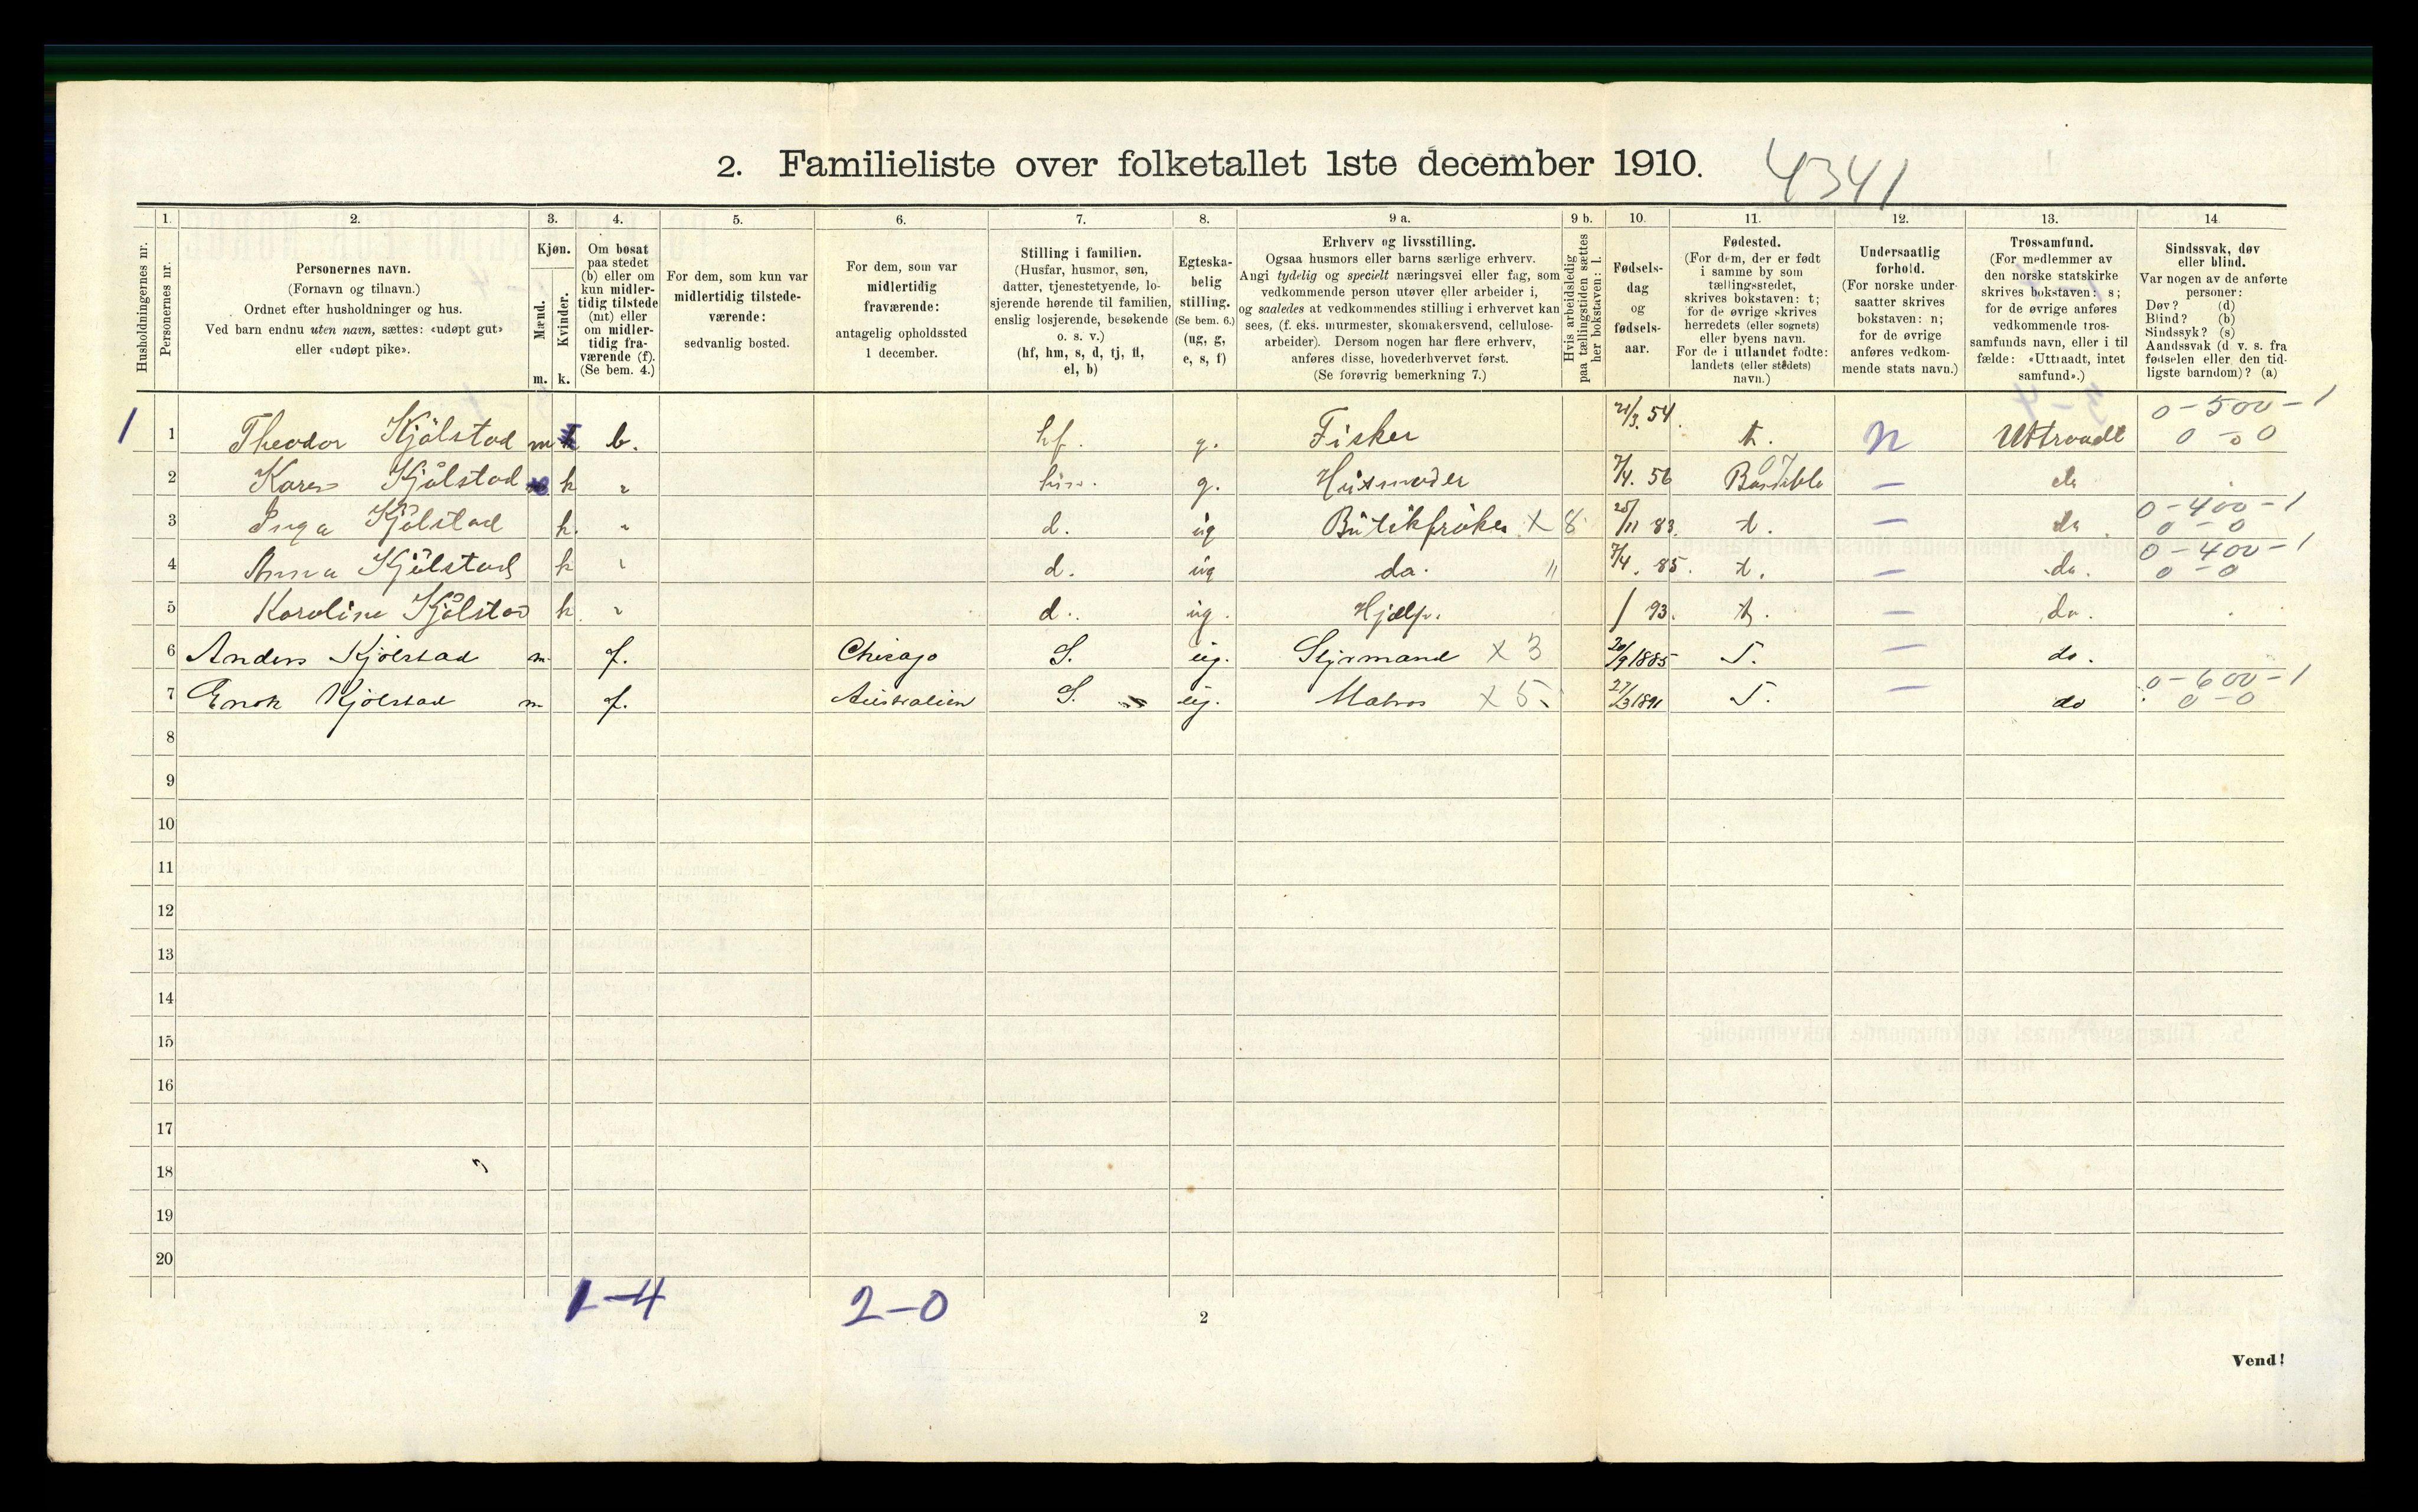 2. Familieliste over folketallet 1ste december 1910. 4341
Husholdningernes nr.
1.
Personernes nr.
2.
Personernes navn.
(Fornavn og tilnavn.)
Ordnet efter husholdninger og hus.
Ved barn endnu uten navn, sættes: «udøpt gut»
eller «udøpt pike».
3.
Kjøn.
Mænd.
Kvinder.
m. k.
4.
Om bosat
paa stedet
(b) eller om
kun midler-
tidig tilstede
(mt) eller
om midler-
tidig fra-
værende (f).
(Se bem. 4.)
5.
For dem, som kun var
midlertidig tilstede-
værende:
sedvanlig bosted.
6.
For dem, som var
midlertidig
fraværende:
antagelig opholdssted
1 december.
7.
Stilling i familien.
(Husfar, husmor, søn,
datter, tjenestetyende, lo-
sjerende hørende til familien,
enslig losjerende, besøkende
o. s. v.)
(hf, hm, s, d, tj, fl,
el, b)
8.
Egteska-
belig
stilling.
(Se bem. 6.)
(ug, g,
e, s, f)
9 a.
Erhverv og livsstilling.
Ogsaa husmors eller barns særlige erhverv.
Angi tydelig og specielt næringsvei eller fag, som
vedkommende person utøver eller arbeider i,
og saaledes at vedkommendes stilling i erhvervet kan
sees, (f. eks. murmester, skomakersvend, cellulose-
arbeider). Dersom nogen har flere erhverv,
anføres disse, hovederhvervet først.
(Se forøvrig bemerkning 7.)
9 b.
Hvis arbeidsledig
paa tællingstiden sættes
her bokstaven: l.
10.
Fødsels-
dag
og
fødsels-
aar.
11.
Fødested.
(For dem, der er født
i samme by som
tællingsstedet,
skrives bokstaven: t;
for de øvrige skrives
herredets (eller sognets)
eller byens navn.
For de i utlandet fødte:
landets (eller stedets)
navn.)
12.
Undersaatlig
forhold.
(For norske under-
saatter skrives
bokstaven: n;
for de øvrige
anføres vedkom-
mende stats navn.)
13.
Trossamfund.
(For medlemmer av
den norske statskirke
skrives bokstaven: s;
for de øvrige anføres
vedkommende tros-
samfunds navn, eller i til
fælde: «Uttraadt, intet
samfund».)
14
Sindssvak, døv
eller blind.
Var nogen av de anførte
personer:
Døv? (d)
Blind? (b)
Sindssyk? (s)
Aandssvak (d. v. s. fra
fødselen eller den tid-
ligste barndom)? (a)
1 1 Theodor Kjölstad m b. hf. g. Fisker 21/3. 54. t. n Uttraadt 0-500-1 0-0
2 Karen Kjölstad k " hm. g. Husmoder 7/4. 56 Bamble — do
3 Inga Kjölstad k. " d. ug Butikfröken x 8 25/11 83. t. — do 0-400-1 0-0
4 Anna Kjölstad k " d. ug do. " 7/4. 85. t. — do. 0-400-1 0-0
5 Karoline Kjölstad k. " d. ug. Hjælp. / 93. t. — do.
6 Anders Kjölstad m. f. Chicago S. ug. Styrmand x 3 20/9 1885 T. — do.
7 Enok Kjölstad m. f. Australien S. ug. Matros x 5 27/3 1891 T. — do 0-600-1 0-0
8
9
10
11
12
13
14
15
16
17
18
19
20
1-4 2-0
2
Vend!